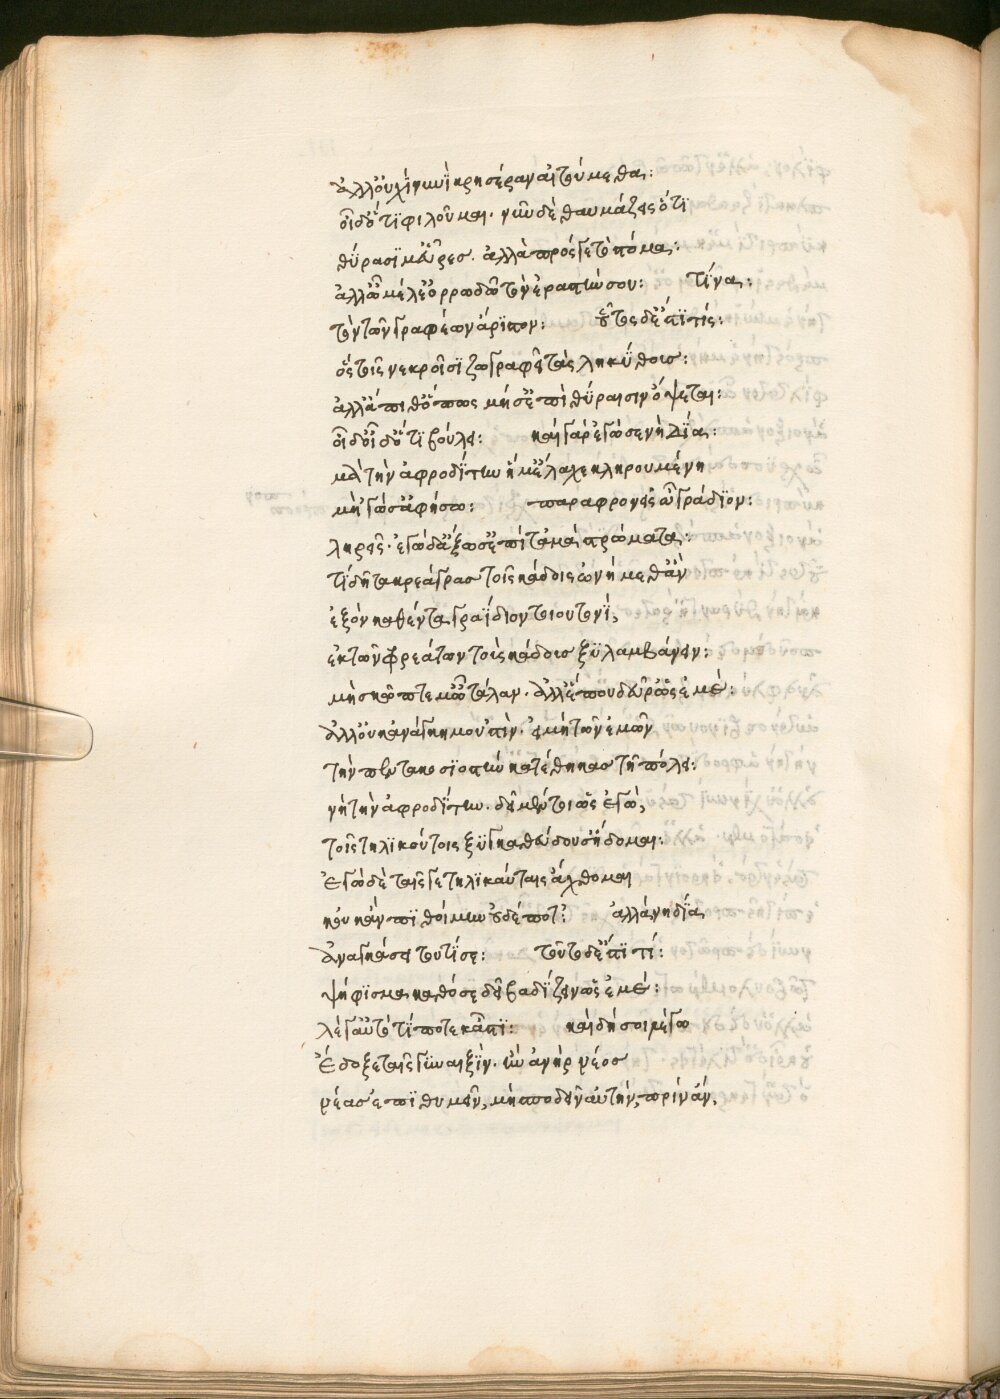 ἀλλ' οὐχὶ νυνὶ κρησέραν αἰτούμεθα:
οἶδ' ὅτι φιλοῦμαι· νῦν δὲ θαυμάζεις ὅτι
θύρασί μ' εὗρες. ἀλλὰ πρόσγε τὸ στόμα:
ἀλλ' ὦ μέλε ὀρρωδῶ τὸν ἐραστήν σου: τίνα:
τὸν τῶν γραφέων ἄριστον: οὗτος δ' ἐστὶ τίς:
ὅς τοῖς νεκροῖσι ζωγραφεῖ τὰς ληκύθους:
ἀλλ' ἄπιθ' ὅπως μή σ' ἐπὶ θύραισιν ὄψεται:
οἶδ' οἶδ' ὅτι βούλει: καὶ γὰρ ἐγώ σε νὴ Δία:
μὰ τὴν ἀφροδίτην ἥ μ' ἔλαχε κληρουμένη
μὴ 'γώ σ' ἀφήσω: παραφρονεῖς ὦ γράδιον:
ληρεῖς· ἐγὼ δ' ἄξω σ' ἐπὶ τἀμὰ στρώματα:
τί δῆτα κρεάγρας τοῖς κάδδοις ὠνήμεθ' ἂν
ἐξὸν καθέντα γραΐδιον τοιουτονί,
ἐκ τῶν φρεάτων τοὺς κάδδους ξυλλαμβάνειν:
μὴ σκῶπτέ μ' ὦ τάλαν· ἀλλ' ἕπου δεῦρ' ὡς ἐμέ:
ἀλλ' οὐκ ἀνάγκη μοὐστὶν· εἰ μὴ τῶν ἐμῶν
τὴν πεντακοσιοστὴν κατέθηκας τῇ πόλει:
νὴ τὴν ἀφροδίτην· δεῖ μέντοι ὡς ἐγώ,
τοῖς τηλικούτοις ξυγκαθεύδουσ' ἥδομαι:
ἐγὼ δὲ ταῖς γε τηλικαύταις ἄχθομαι
κοὐκ ἂν πιθοίμην οὐδέποτ': ἀλλὰ νὴ δία
ἀναγκάσει τουτί σε: τοῦτο δ' ἐστὶ τί:
ψήφισμα καθ' ὅ σε δεῖ βαδίζειν ὡς ἐμέ:
λέγ' αὐτὸ τί ποτε κᾄστι: καὶ δή σοι λέγω
ἔδοξε ταῖς γυναιξίν· ἢν ἀνὴρ νέος
νέας ἐπιθυμεῖ, μὴ σποδεῖν αὐτὴν, πρὶν ἄν,